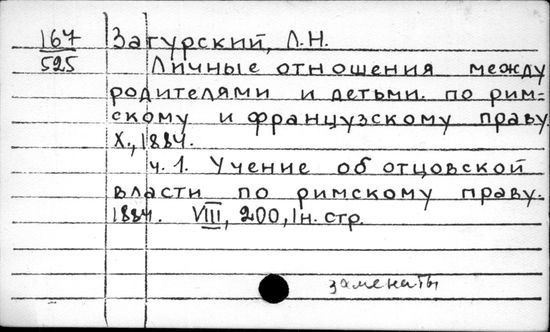 167
525
Загурский, Л.Н.
Личные отношения между
родителями и детьми. по рим=
скому и французскому праву
Х., 1884.
ч. 1. Учение об отцовской
власти по римскому праву.
1884. VIII, 200, 1н. стр.
заменаты